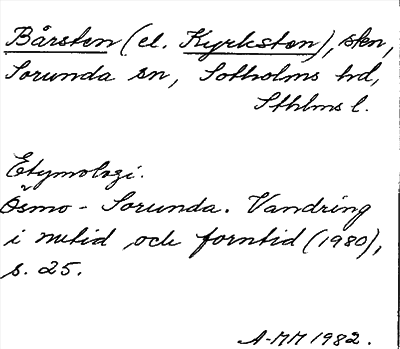 Bårsten (el. Kyrksten), sten,
Sorunda sn, Sotholms hd,
Sthlms l.
Etymologi.
Ösmo - Sorunda. Vandring
i nutid och forntid (1980),
s. 25.
A-MM 1982.